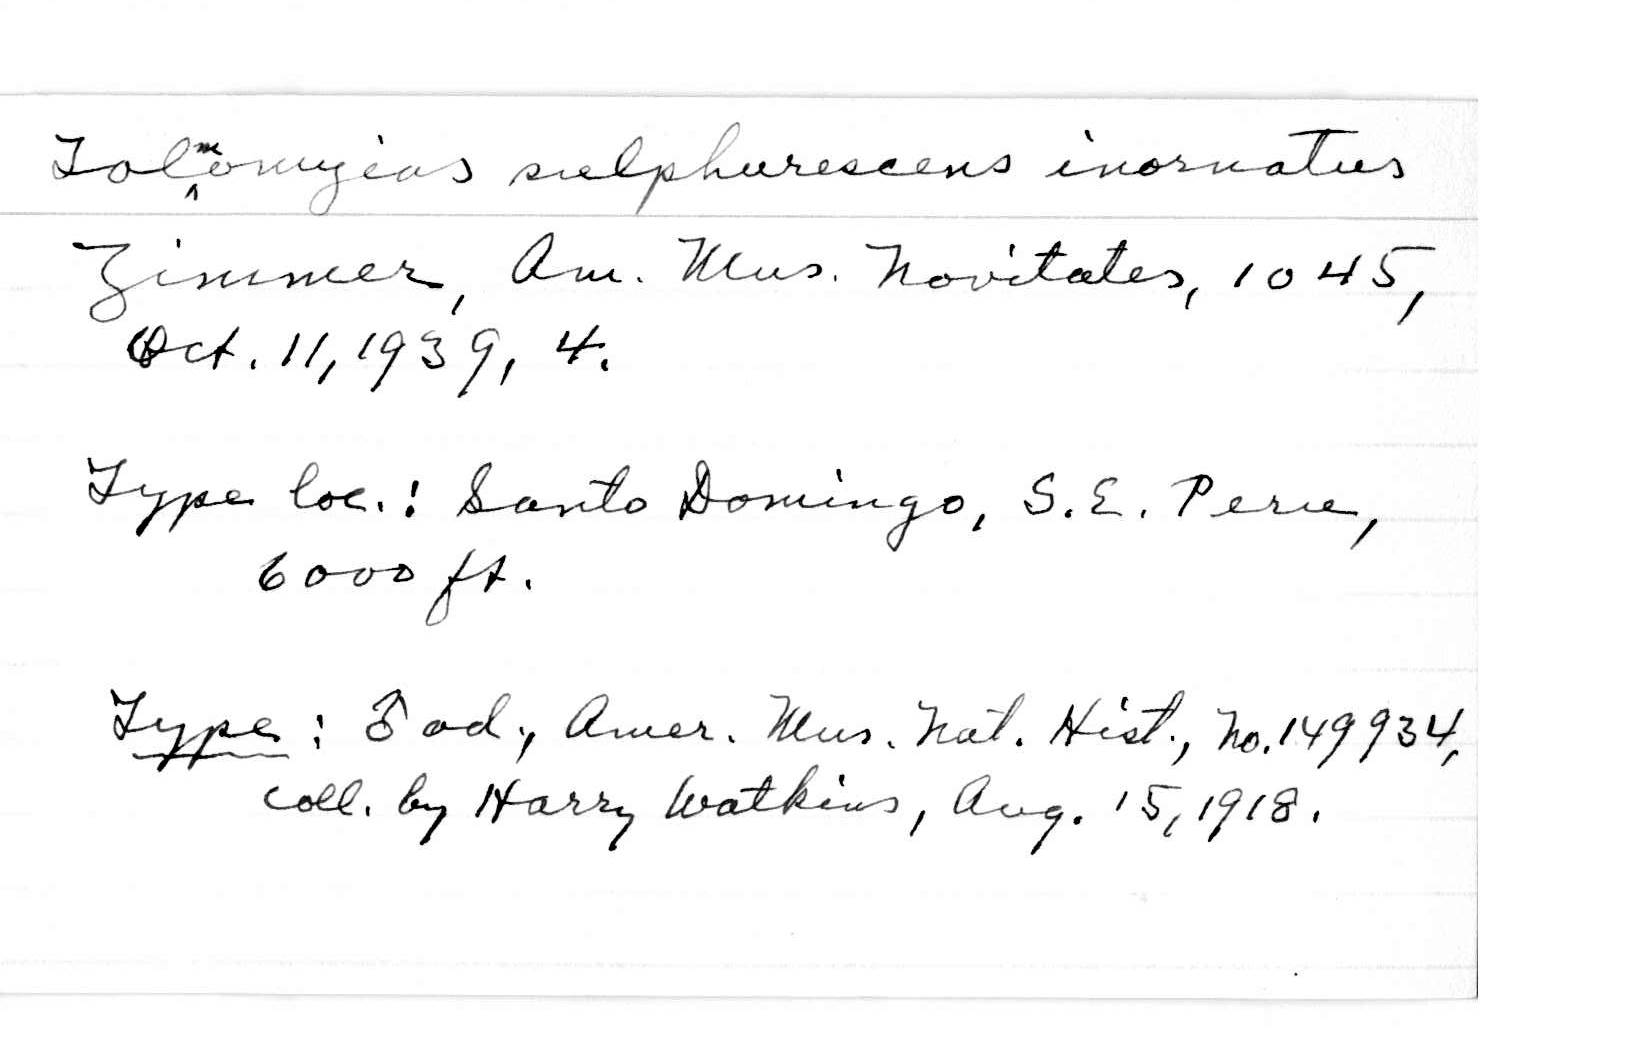 Tolmomyias sulphurescens inornatus
Zimmer, Am. Mus. Novitates, 1045,
Oct. 11, 1939, 4.
Type loc.: Santo Domingo, S.E. Peru,
6000 ft.
Type: ♂ ad., Amer. Mus. Nat. Hist., No. 149934,
coll. by Harry Watkins, Aug. 15, 1918.